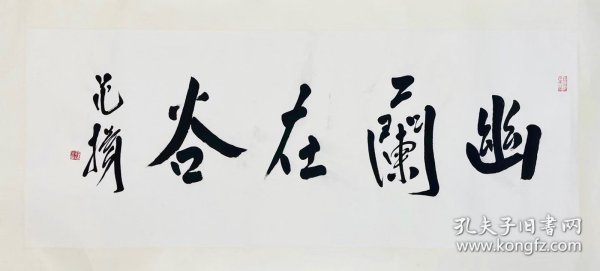 幽蘭在谷
孔夫子旧书网
www.kongfz.com